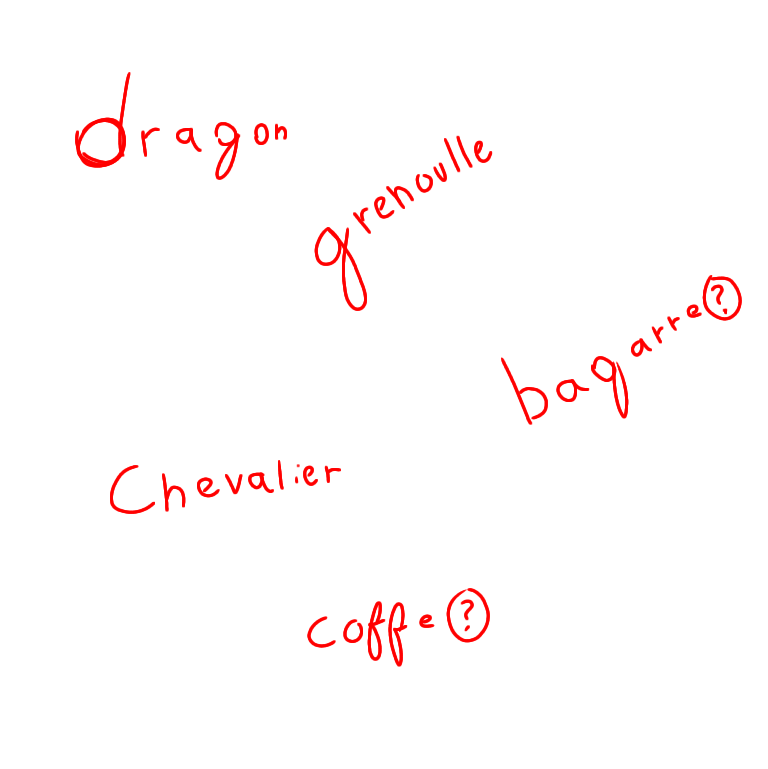 dragon
grenoulle
bagarre?
Chevalier
coffe?